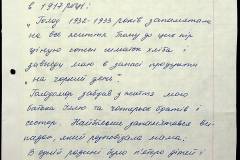 в 1917 році:
"Голод 1932-1933 років запам'ятала
на все життя. Тому до цих пір
ціную кожен шматок хліба і
завжди маю в запасі продукти
"на чорний день"
Голодомор забрав з життя мого
батька Килю та чотирьох братів і
сестер. Найбільше запам'ятався ви-
падок, який розповідала мама:
В одній родині було п'ятеро дітей і